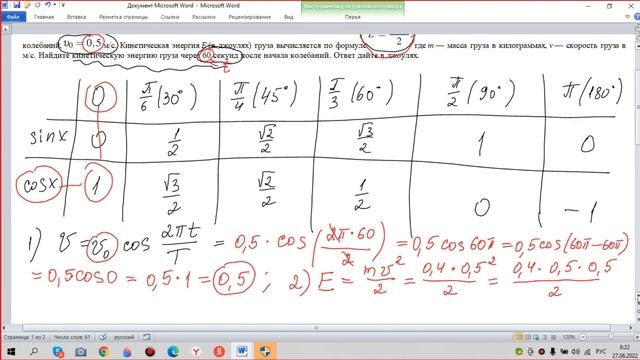 Документ Microsoft Word - Microsoft Word
Главная Вставка Разметка страницы Ссылки Рассылки Рецензирование Вид
колебаний υ₀ = 0,5 м/с. Кинетическая энергия E (в джоулях) груза вычисляется по формуле E = /2 где m — масса груза в килограммах, v — скорость груза в
м/с. Найдите кинетическую энергию груза через 60 секунд после начала колебаний. Ответ дайте в джоулях.
t
0 π/6 (30°) π/4 (45°) π/3 (60°) π/2 (90°) π (180°)
sinx 0 1/2 √2/2 √3/2 1 0
cosx 1 √3/2 √2/2 1/2 0 -1
1) υ = υ₀ cos 2πt/T = 0,5 · cos (2π·60/2) = 0,5 cos 60π = 0,5 cos(60π-60π)
= 0,5 cos 0 = 0,5 · 1 = 0,5 ; 2) E = mυ²/2 = 0,4 · 0,5²/2 = 0,4 · 0,5 · 0,5/2
Страница: 1 из 2 Число слов: 61 русский 120%
РУС 8:22
27.06.2022